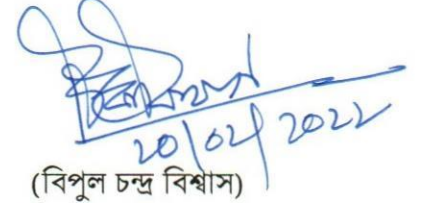 20/02/2022
(বিপুল চন্দ্র বিশ্বাস)